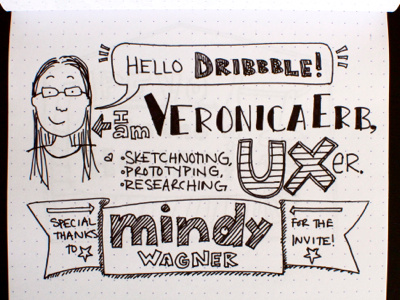 HELLO DRIBBBLE!
I am VERONICA ERB,
a •SKETCHNOTING,
•PROTOTYPING,
•RESEARCHING
UXER.
SPECIAL THANKS TO
mindy WAGNER
FOR THE INVITE!